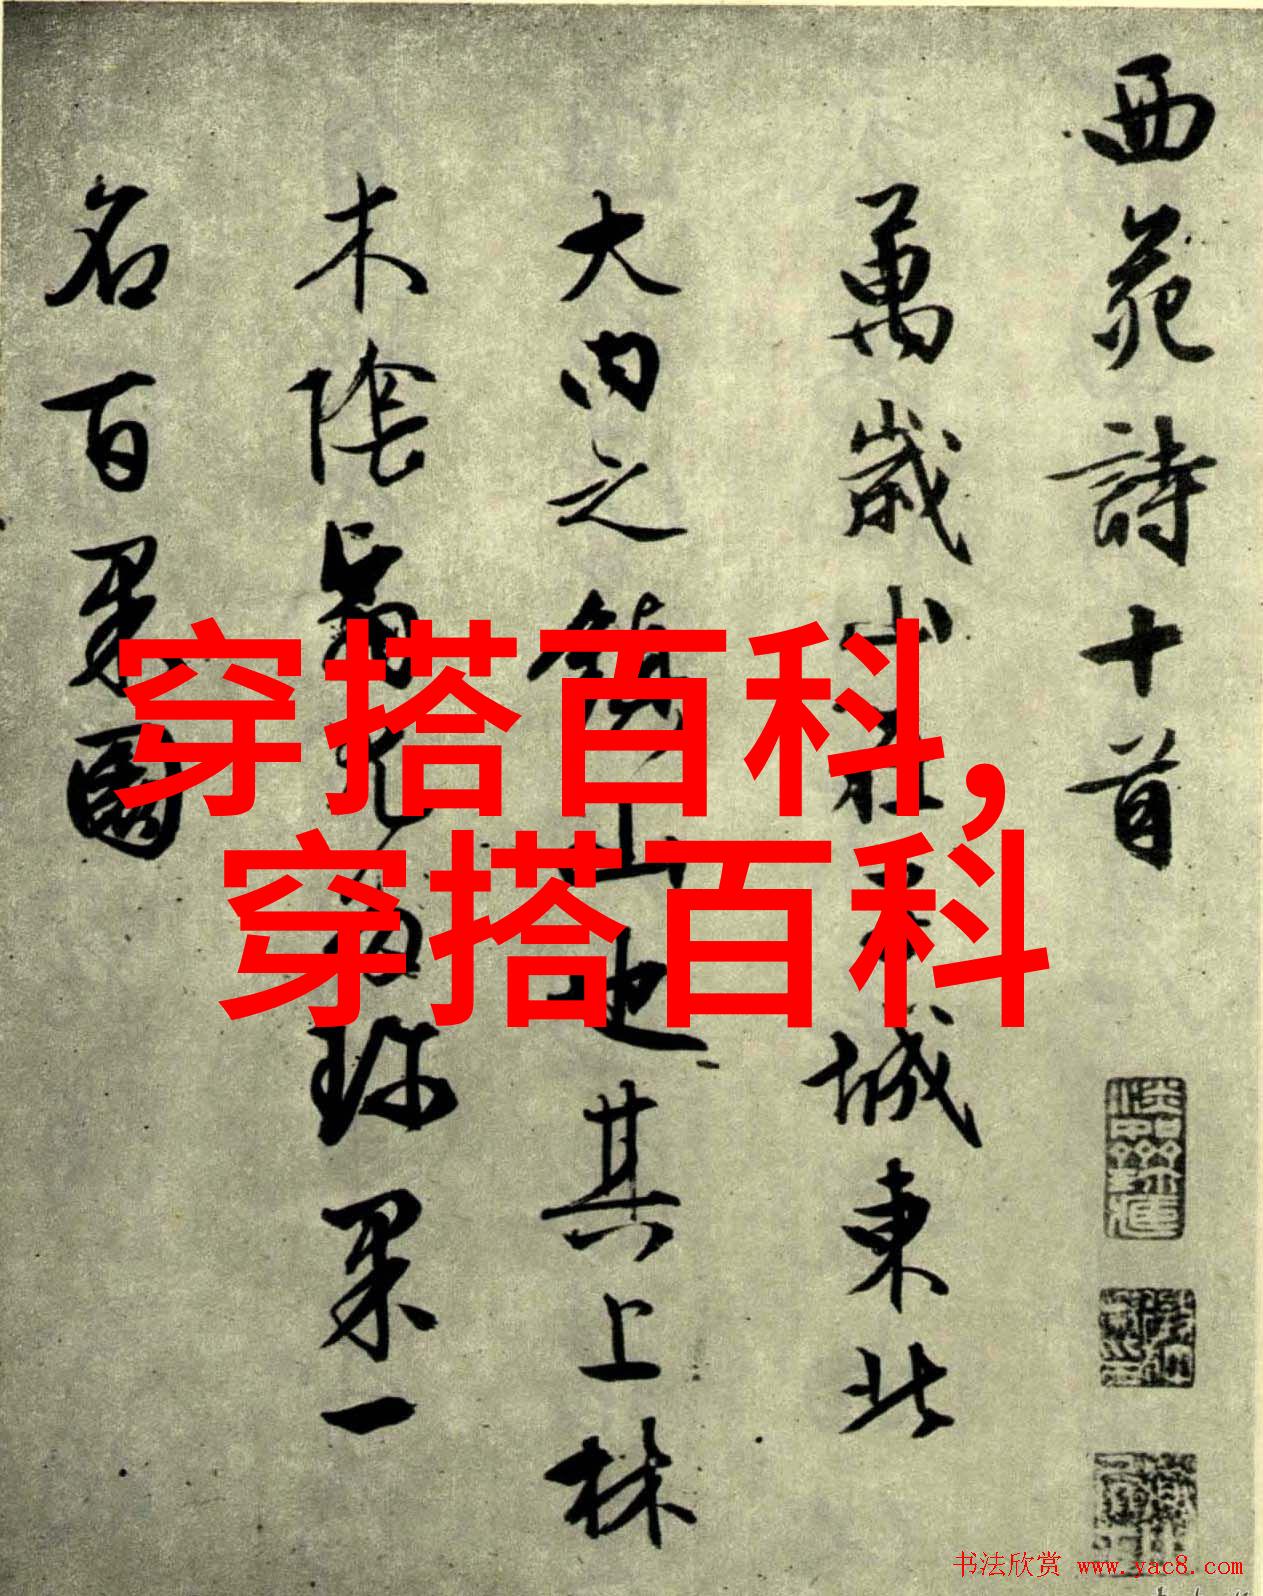 西苑詩十首
萬歲山在子城東北
大内之鎮山也其上林
木陰翳尤多珍果一
名百果園
穿搭百科，
穿搭百科
书法欣赏 www.yac8.com